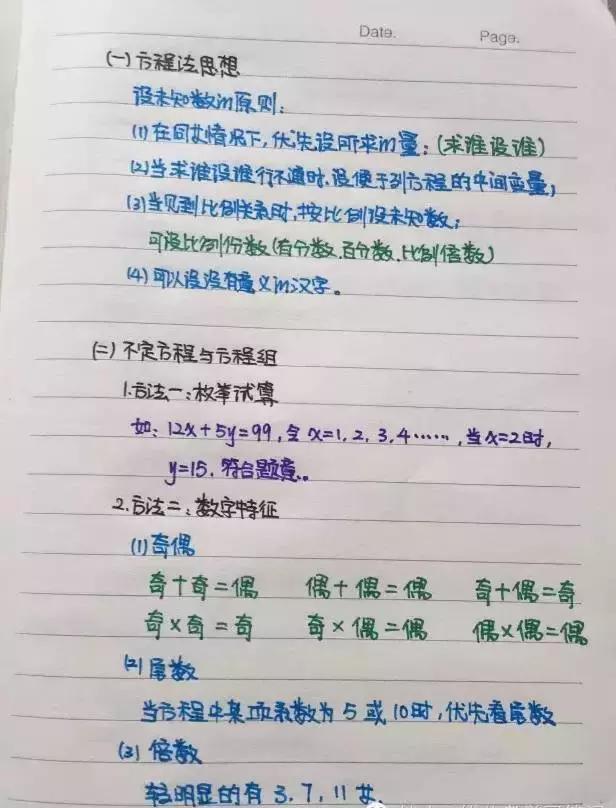 Date.
Page.
(一)方程法思想
设未知数的原则:
(1)在同其情况下,优先设所求的量;(求谁设谁)
(2)当求谁设谁行不通时,设便于列方程的中间变量;
(3)当见到比例关系时,按比例设未知数;
可设比例份数(有分数、百分数、比例倍数)
(4)可以设没有意义的汉字。
(二)不定方程与方程组
1.方法一:枚举试算
如: 12x+5y=99,令x=1,2,3,4……,当x=2时,
y=15,符合题意。
2.方法二:数字特征
(1)奇偶
奇+奇=偶 偶+偶=偶 奇+偶=奇
奇×奇=奇 奇×偶=偶 偶×偶=偶
(2)尾数
当方程中某项系数为5或10时,优先看尾数
(3)倍数
较明显的有3、7、11